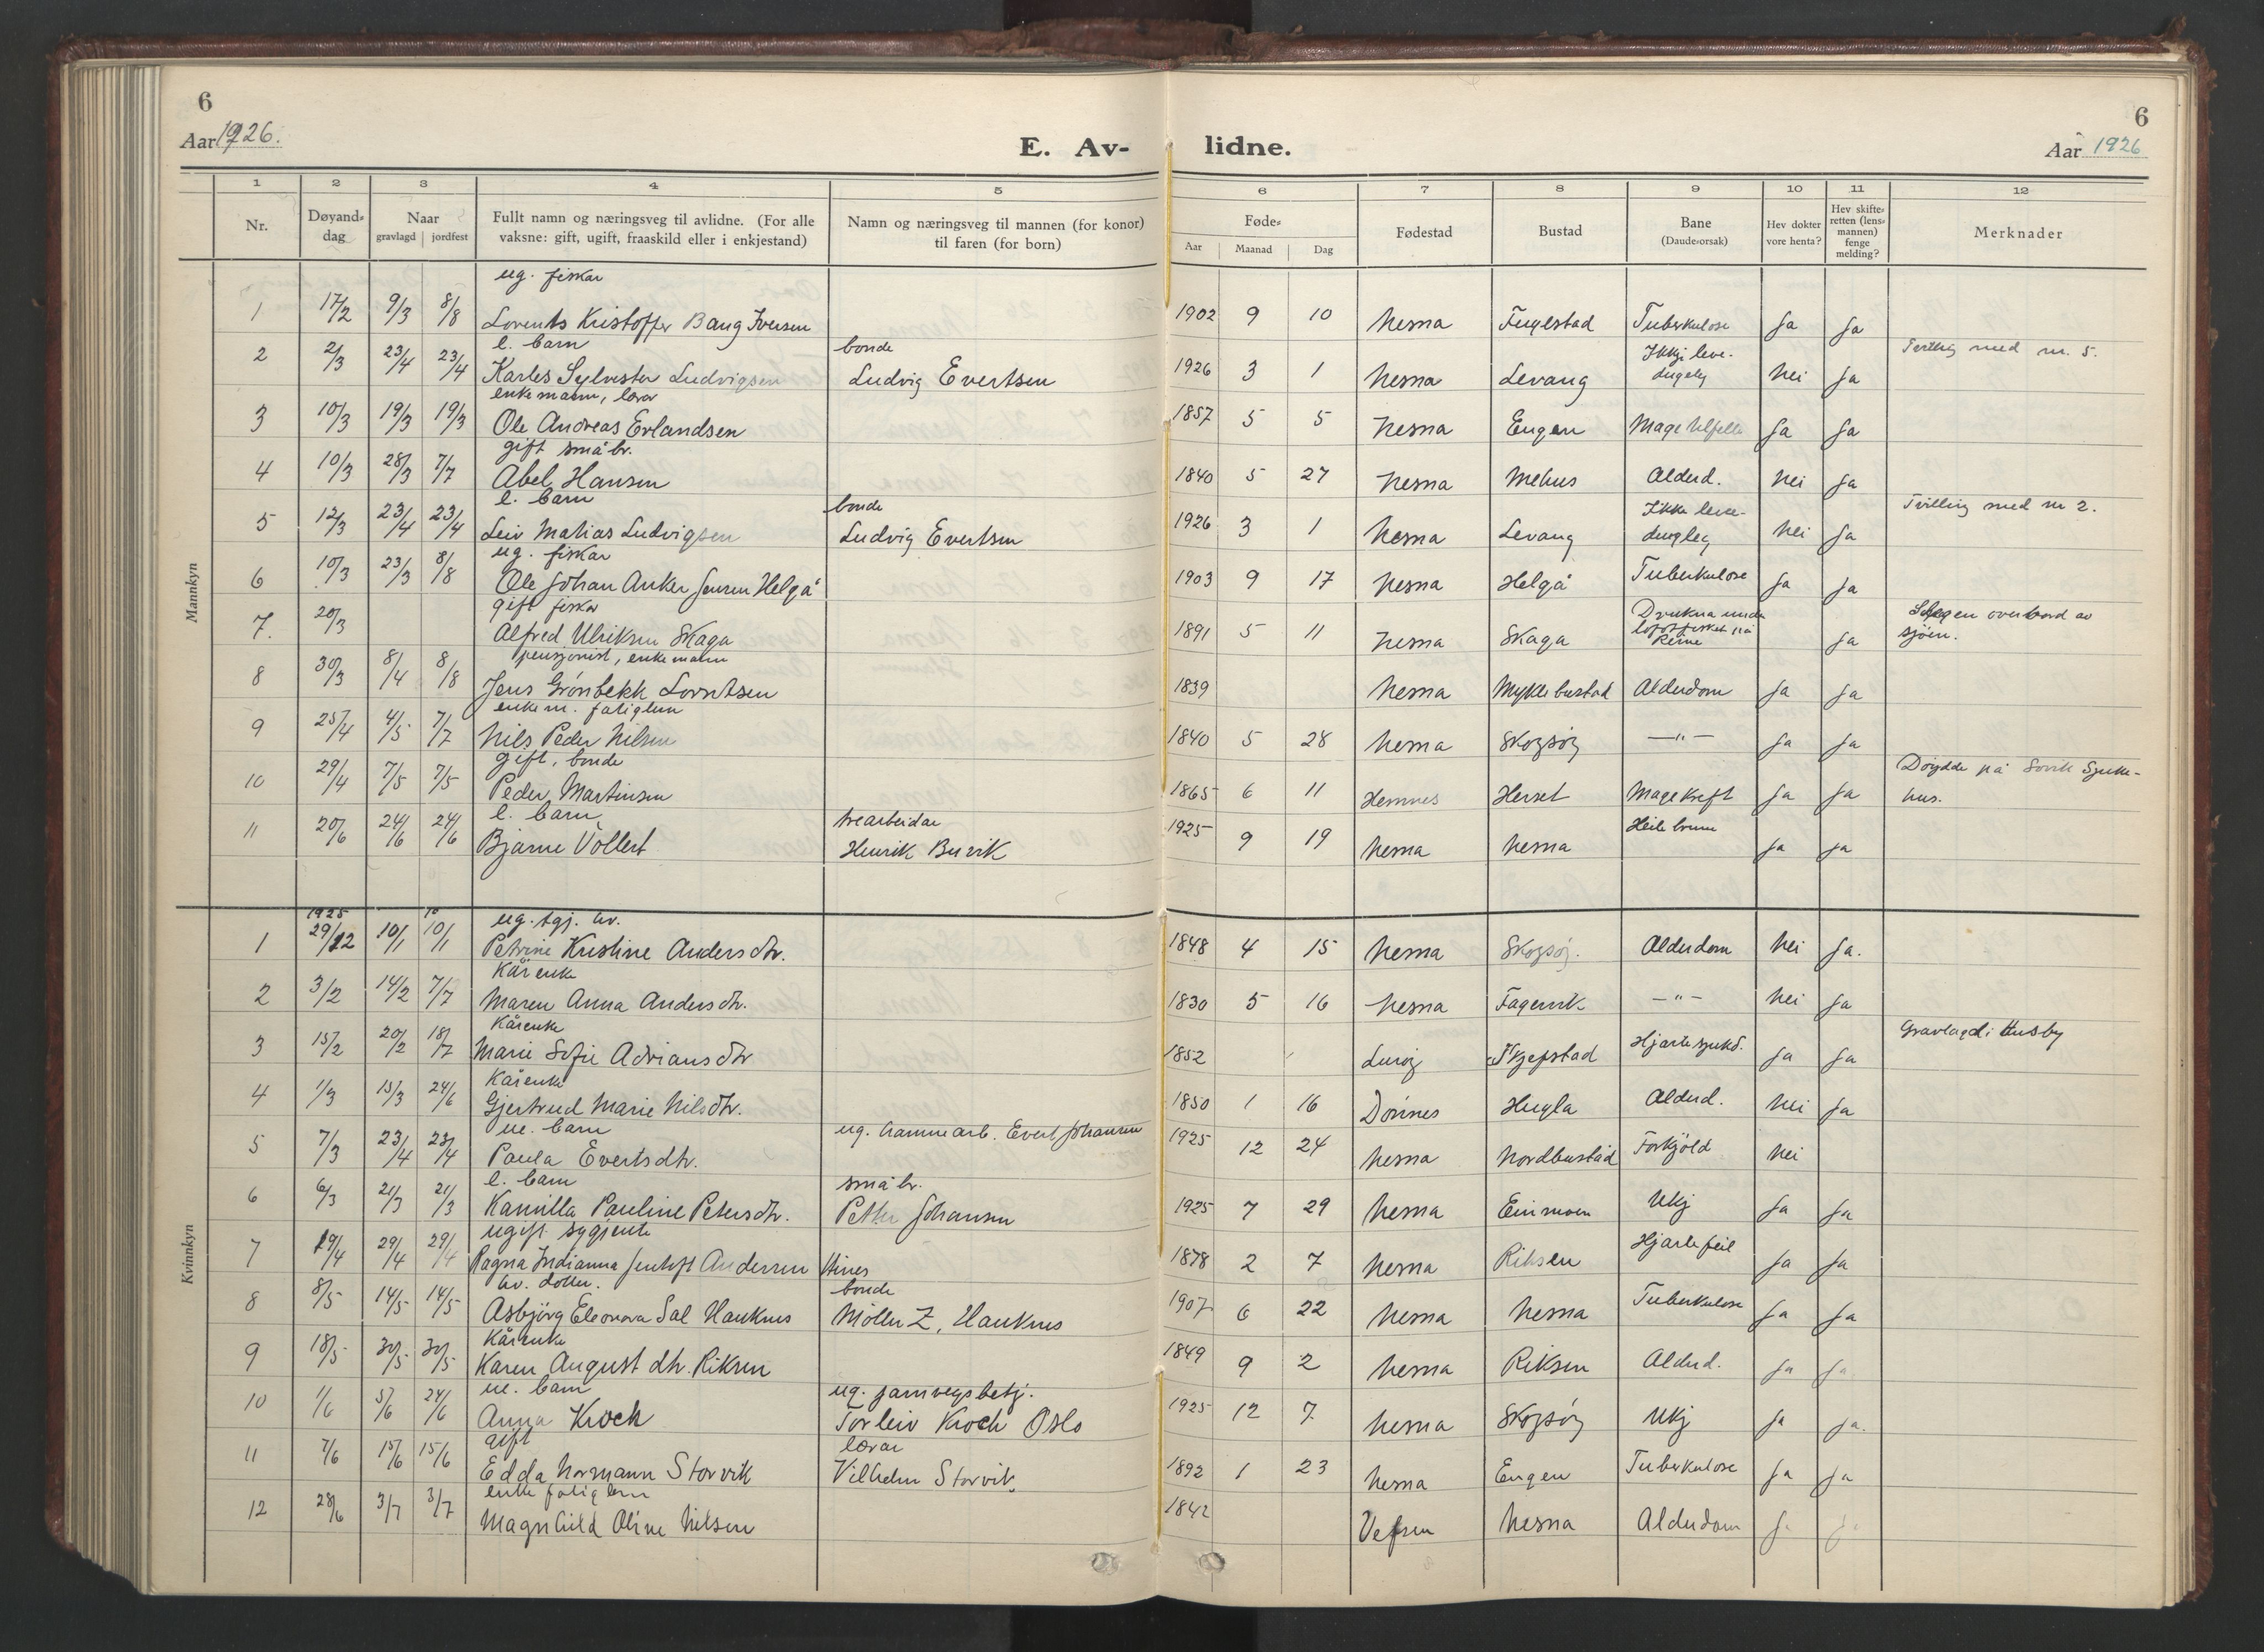 6
6
Aar 1926.
E. Av-
lidne.
Aar 1926
1 2 3 4 5 6 7 8 9 10 11 12
Nr.
Døyand-
dag
Naar
gravlagd | jordfest
Fullt namn og næringsveg til avlidne. (For alle
vaksne: gift, ugift, fraaskild eller i enkjestand)
Namn og næringsveg til mannen (for konor)
til faren (for born)
Føde-
Aar Maanad Dag
Fødestad
Bustad
Bane
(Daude-orsak)
Hev dokter
vore henta?
Hev skifte-
retten (lens-
mannen)
fenge
melding?
Merknader
Mannkyn
ug. fiskar
1 17/2 9/3 8/8 Lorents Kristoffer Bang Iversen 1902 9 10 Nesna Fuglstad Tuberkulose Ja Ja
e. barn bonde Ikkje leve- Tvilling med nr. 5.
2 2/3 23/4 23/4 Karles Sylvester Ludvigsen Ludvig Evertsen 1926 3 1 Nesna Levang dugeleg Nei Ja
enkemann, lærar
3 10/3 19/3 19/3 Ole Andreas Erlandsen 1857 5 5 Nesna Engen Ja Ja
gift småbr.
4 10/3 28/3 7/7 Abel Hansen 1840 5 27 Nesna Mehus Alderd. Nei Ja
e. barn bonde Ikke leve- Tvilling med nr 2.
5 12/3 23/4 23/4 Leiv Matias Ludvigsen Ludvig Evertsen 1926 3 1 Nesna Levang dugleg Nei Ja
ug. fiskar
6 10/3 23/3 8/8 Ole Johan Anker Jensen Helgå 1903 9 17 Nesna Helgå Tuberkulose Ja Ja
gift fiskar Drukna under Slegen overbord av
7. 20/3 Alfred Ulriksen Skaga 1891 5 11 Nesna Skaga lofotfisket på Reine Ja sjöen.
pensjonist, enkemann
8 30/3 8/4 8/8 Jens Grönbekk Lorntsen 1839 Nesna Myklebustad Alderdom Ja Ja
enkem. fatiglem
9 25/4 4/5 7/7 Nils Peder Nilsen 1840 5 28 Nesna Skogsöy —"— Ja Ja
gift, bonde Döydde på Sovik Sjuke-
10 29/4 7/5 7/5 Peder Martinsen 1865 6 11 Hemnes Herset Magekreft Ja Ja hus.
e. barn trearbeidar
11 20/6 24/6 24/6 Bjarne Vollert Henrik Buvik 1925 9 19 Nesna Nesna Ja Ja
Kvinnkyn
1925 ug. tgj. hv.
1 29/12 10/1 10/1 Petrine Kristine Andersdtr. 1848 4 15 Nesna Skogsöy. Alderdom Nei Ja.
Kårenke
2 3/2 14/2 7/7 Maren Anna Andersdtr. 1830 5 16 Nesna Fagervik —"— Nei Ja
Kårenke Gravlagd i Husby
3 15/2 20/2 18/7 Marie Sofie Adriansdtr 1852 Luröy Hjartesjukd. Ja Ja
Kårenke
4 1/3 15/3 24/6 Gjertrud Marie Nilsdtr. 1850 1 16 Dönnes Hugla Alderd. Nei Ja
ue. barn ug. hamnearb. Evert Johansen
5 7/3 23/4 23/4 Paula Evertsdtr. 1925 12 24 Nesna Nordbustad Forkjöld Nei
e. barn småbr.
6 6/3 21/3 21/3 Kamilla Pauline Petersdtr. Petter Johansen 1925 7 29 Nesna Einmoen Ukj Ja Ja
ugift sygjente
7 19/4 29/4 29/4 Ragna Indianna Jentoft Andersen Hines 1878 2 7 Nesna Riksen Hjartefeil Ja Ja
hv. dotter. bonde
8 8/5 14/5 14/5 Asbjörg Eleonora Sal Hauknes Möller Z. Hauknes 1907 6 22 Nesna Nesna Tuberkulose Ja Ja
Kårenke
9 18/5 30/5 30/5 Karen Augustdtr. Riksen 1849 9 2 Nesna Riksen Alderd. Ja Ja
ue. barn ug. jarnvegsbetj.
10 1/6 5/6 24/6 Anna Kroch Torleiv Kroch Oslo 1925 12 7. Nesna Skogsöy Ukj Ja Ja.
gift lærar
11 7/6 15/6 15/6 Edda Normann Storvik Vilhelm Storvik 1892 1 23 Nesna Engen Tuberkulose Ja Ja
enke fatiglem
12 28/6 3/7 3/7 Magnhild Oline Nilsen 1842 Vefsen Nesna Alderdom Ja Ja